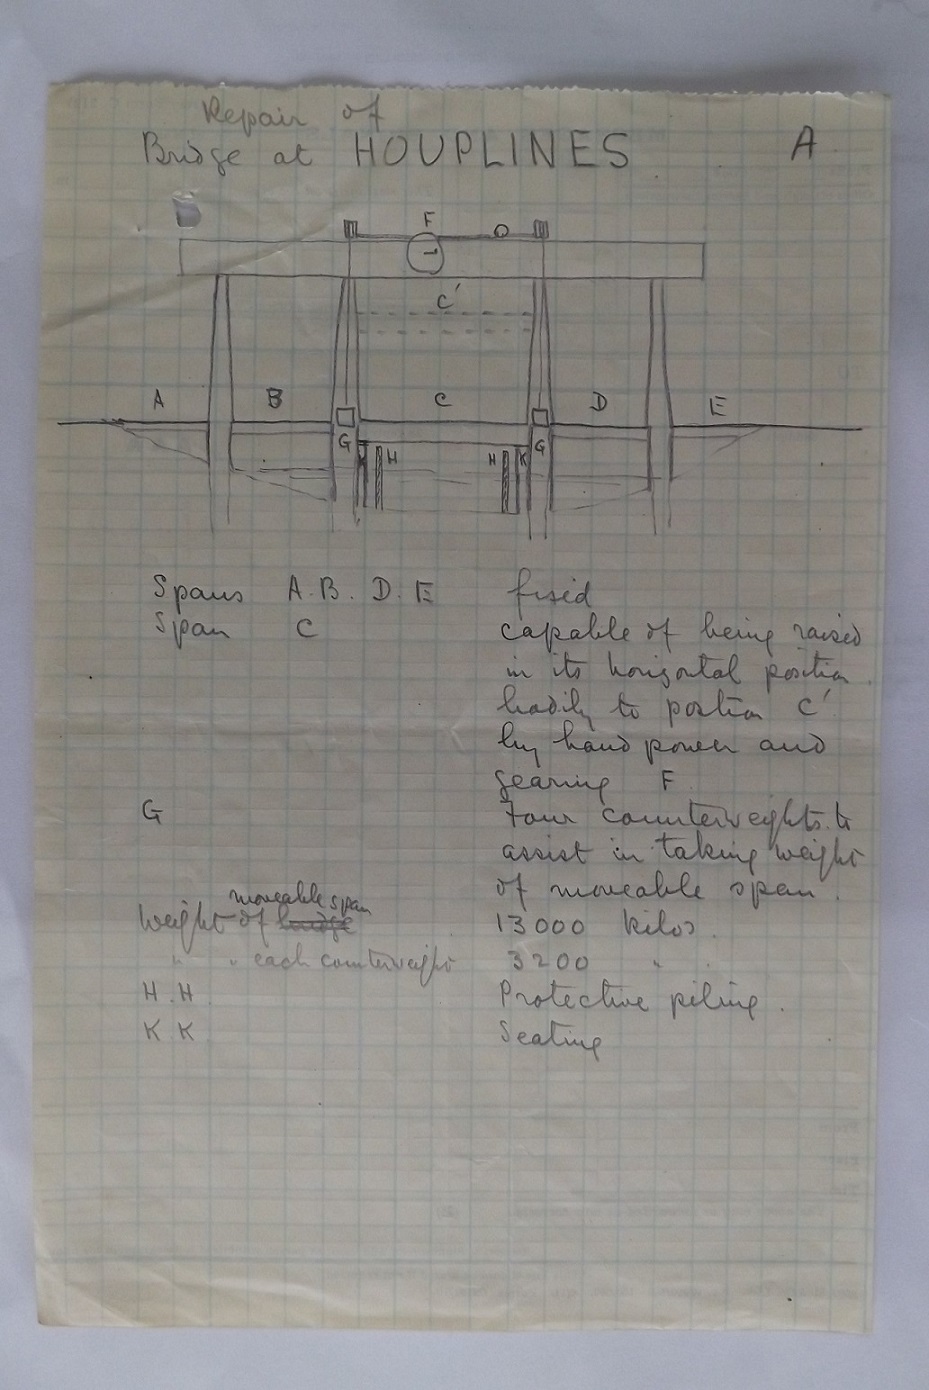 Repair of
Bridge at HOUPLINES A
F
C'
A B C D E
G G
H H K
Spans A. B. D. E fixed
Span C capable of being raised
in its horizontal position
bodily to position C'
by hand power and
gearing F.
G Four counterweights to
assist in taking weight
of moveable span.
moveable span
Weight of bridge 13000 kilos.
" " each counterweight 3200 " .
H.H. Protective piling.
K K Seating